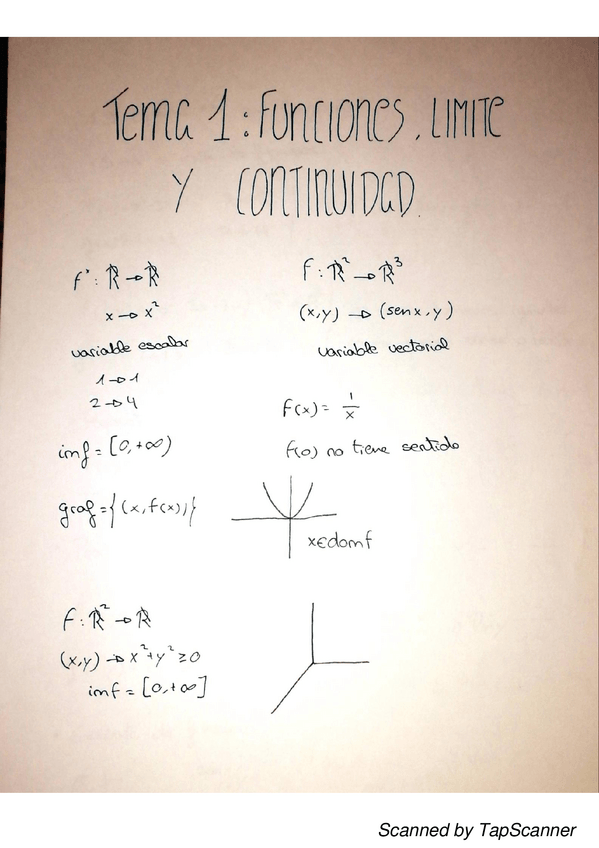 Tema 1: Funciones, LIMITE
Y CONTINUIDAD.
f: ℝ → ℝ
x → x²
variable escalar
1 → 1
2 → 4
imf = [0,+∞)
graf = {(x, f(x))}
f: ℝ² → ℝ³
(x,y) → (senx, y)
variable vectorial
F(x) = 1/x
f(0) no tiene sentido
x∈domf
f: ℝ² → ℝ
(x,y) → x²+y² ≥ 0
imf = [0,+∞]
Scanned by TapScanner